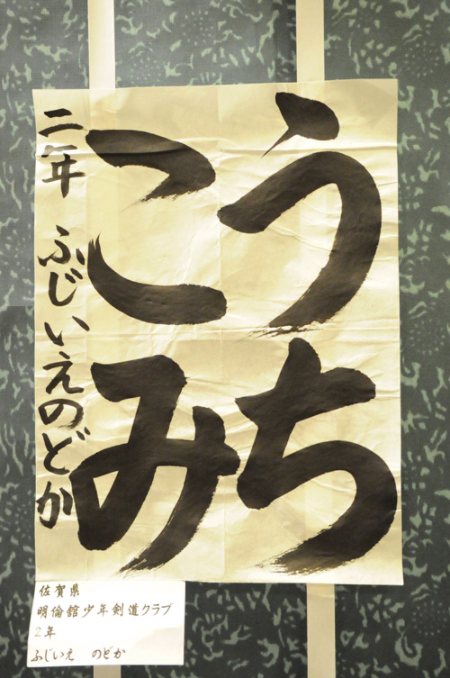 うち
こみ
二年 ふじいえのどか
佐賀県
明倫館少年剣道クラブ
2年
ふじいえ のどか